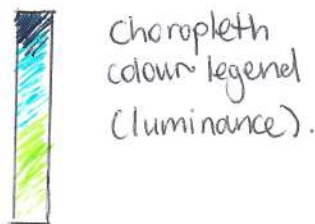 choropleth
colour legend
(luminance).